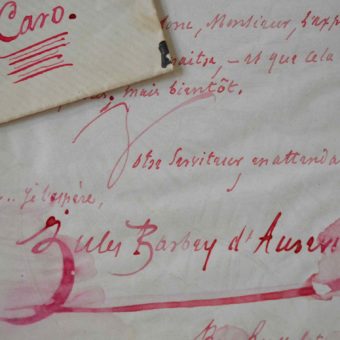 Caro.
Monsieur, l'exp
— et que cela
mais bientôt.
Votre Serviteur en attenda
j'espère,
Jules Barbey d'Aurev